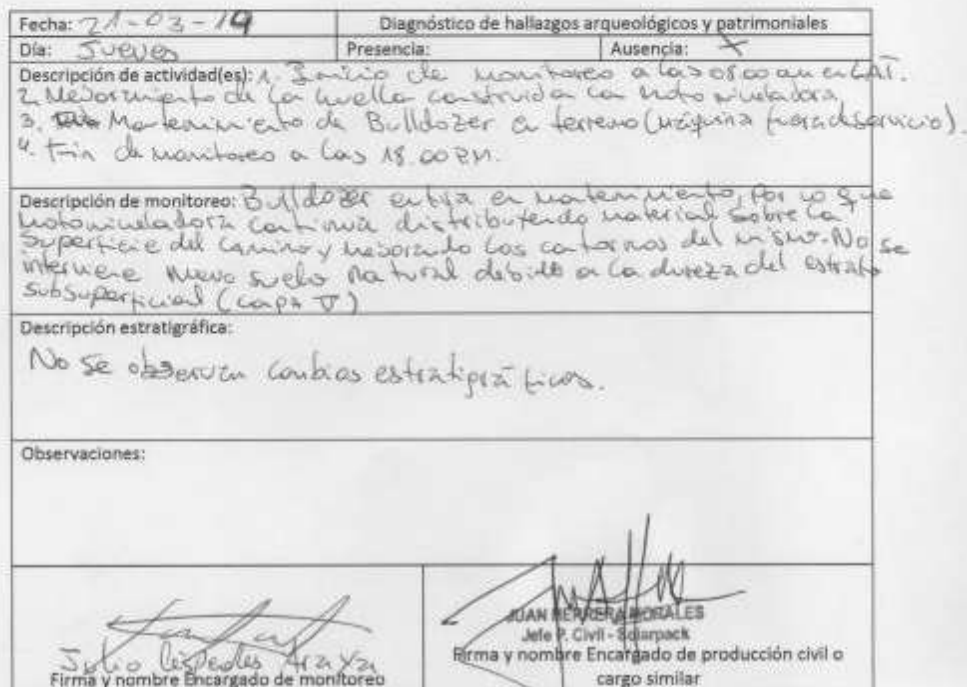 Fecha: 21-03-19 Diagnóstico de hallazgos arqueológicos y patrimoniales
Día: Jueves Presencia: Ausencia: X
Descripción de actividad(es): 1. Inicio de monitoreo a las 08.00 am en CAT.
2. Mejoramiento de la huella construida con motoniveladora.
3. Mantenimiento de Bulldozer en terreno (máquina fuera de servicio).
4. Fin de monitoreo a las 18.00 PM.
Descripción de monitoreo: Bulldozer entra en mantenimiento, por lo que
motoniveladora continua distribuyendo material sobre la
superficie del camino y mejorando los contornos del mismo. No se
interviene nuevo suelo natural debido a la dureza del estrato
subsuperficial (capa V)
Descripción estratigráfica:
No se observan cambios estratigráficos.
Observaciones:
JUAN HERRERA MORALES
Jefe P. Civil - Solarpack
Julio Céspedes Araya
Firma y nombre Encargado de monitoreo
Firma y nombre Encargado de producción civil o
cargo similar